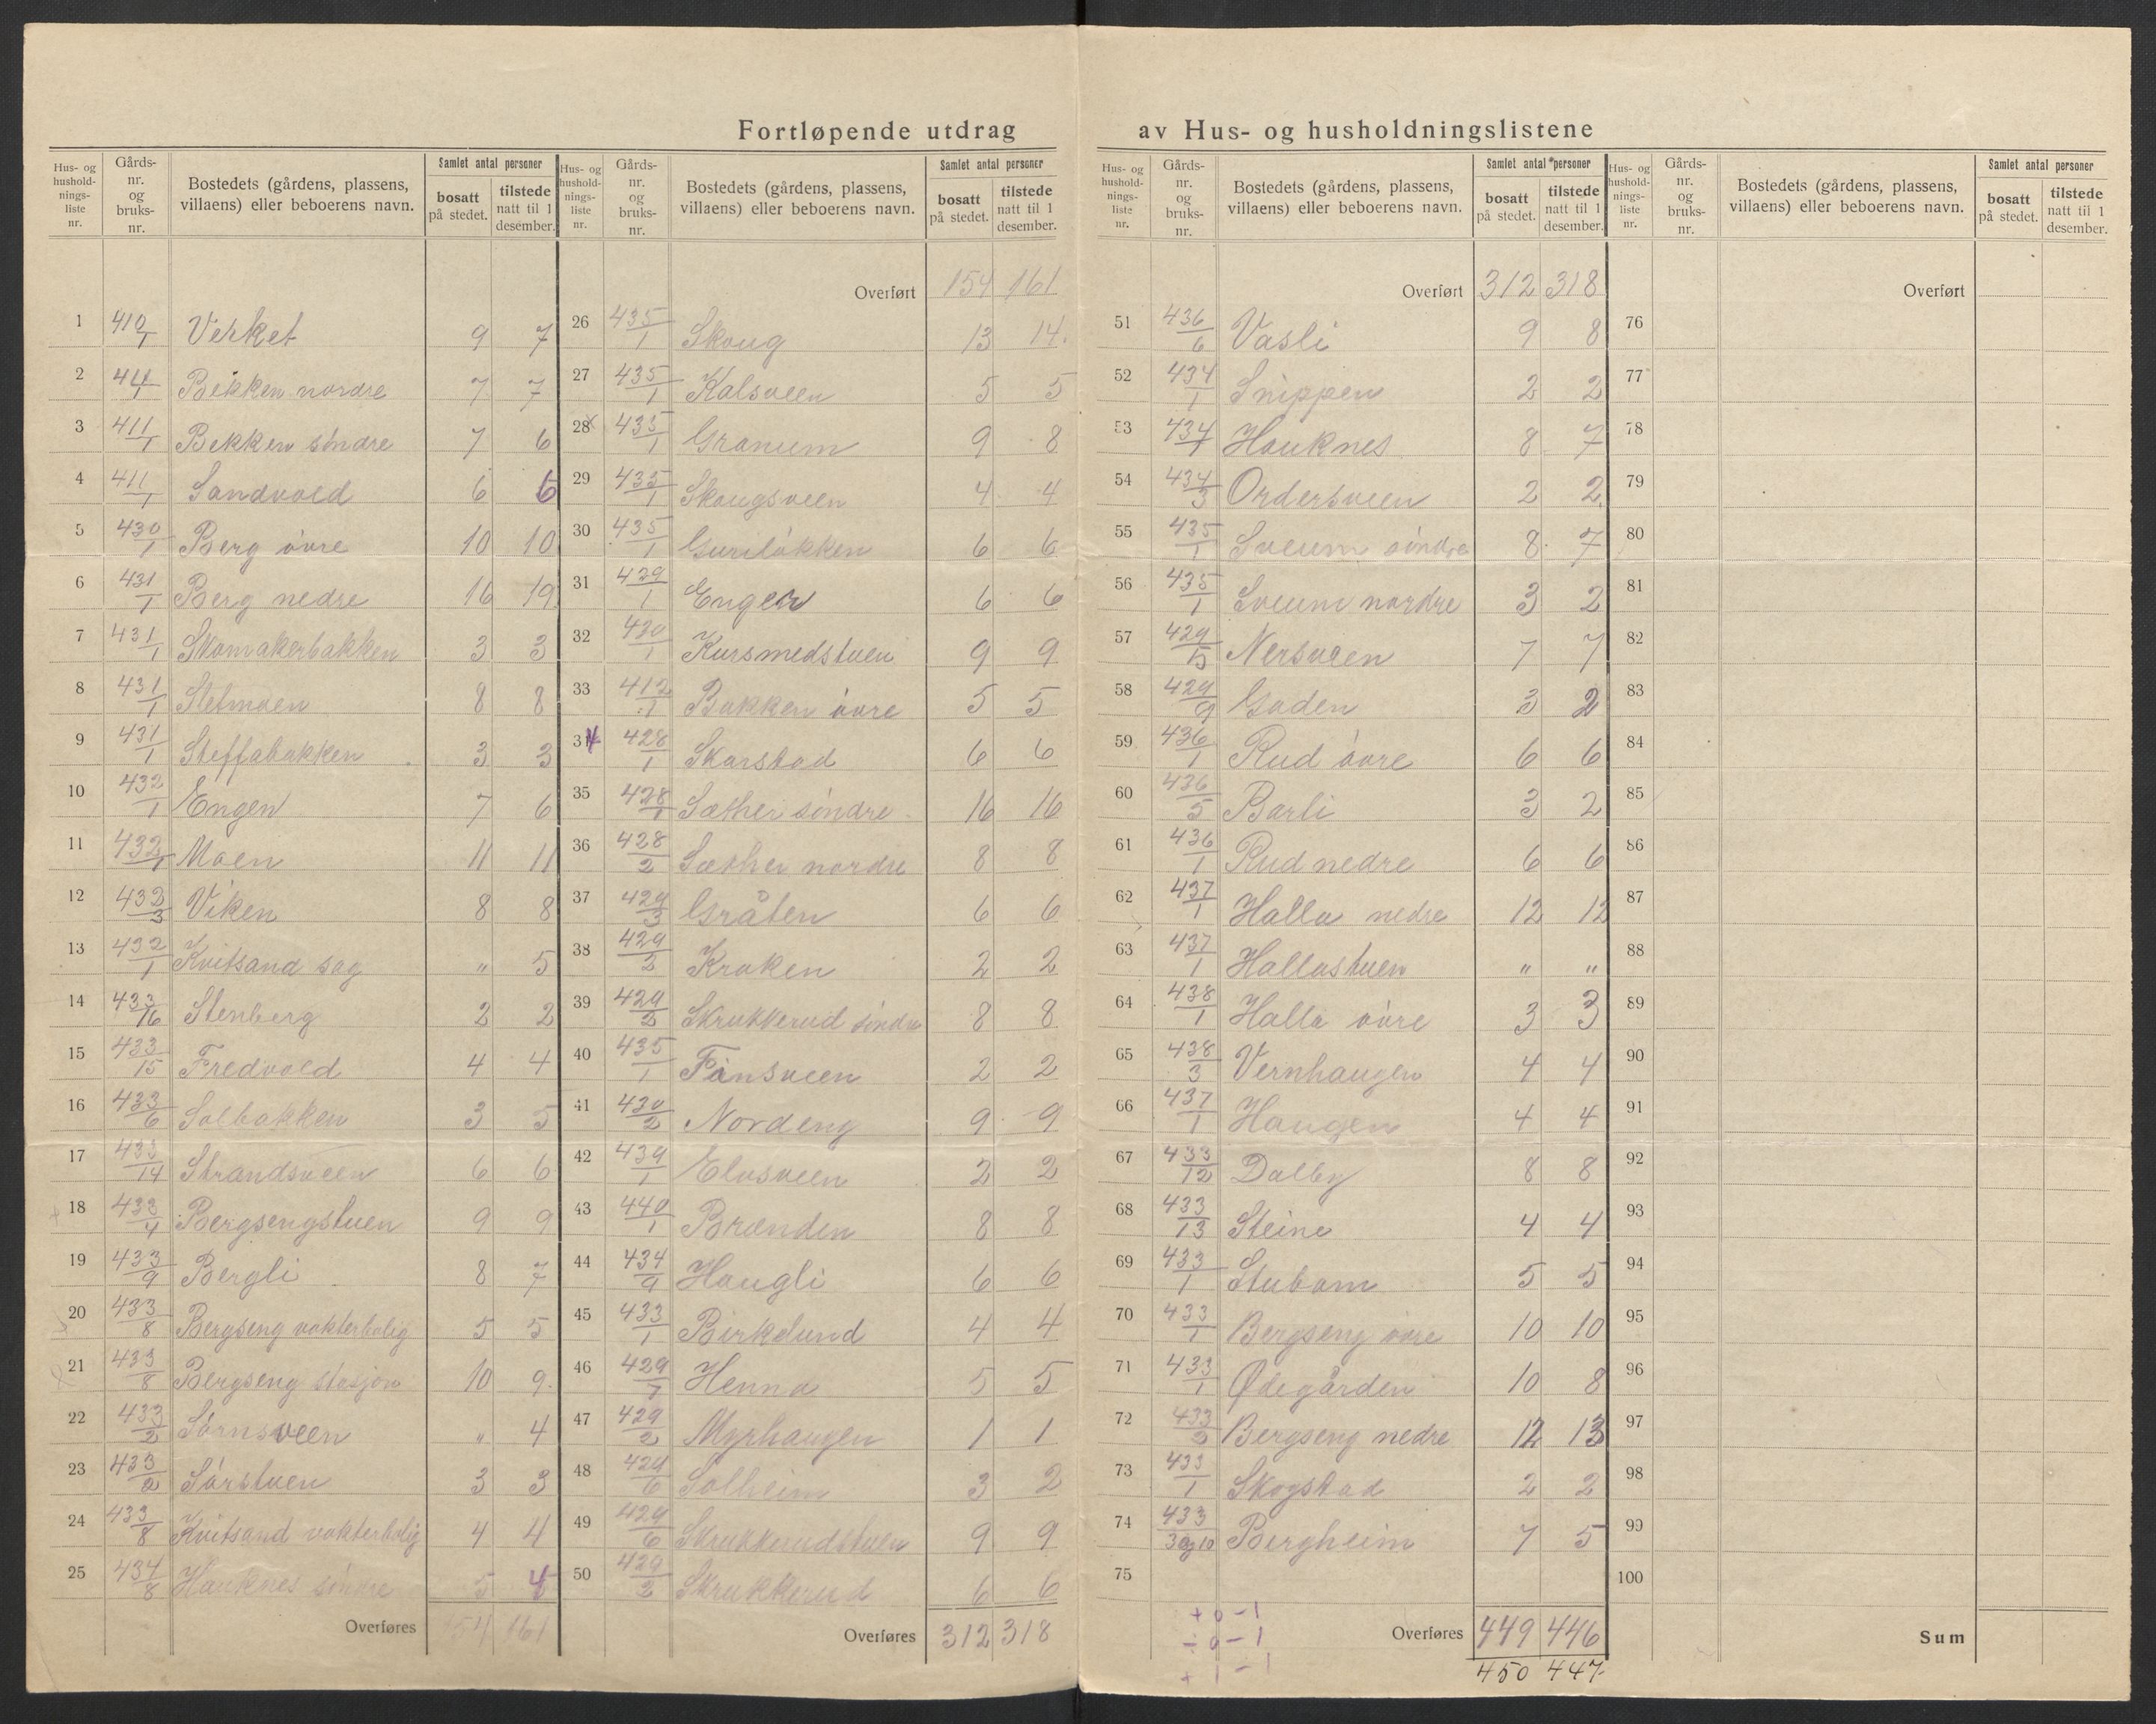 Fortløpende utdrag av Hus- og husholdningslistene
Hus- og husholdnings-liste nr. | Gårds-nr. og bruks-nr. | Bostedets (gårdens, plassens, villaens) eller beboerens navn. | Samlet antal personer | bosatt på stedet. | tilstede natt til 1 desember.
1 410/1 Verket 9 7
2 411/1 Bekken nordre 7 7
3 411/1 Bekken søndre 7 6
4 411/1 Sandvold 6 6
5 430/1 Berg øvre 10 10
6 431/1 Berg nedre 16 19
7 431/1 Skomakerbakken 3 3
8 431/1 Sletmoen 8 8
9 431/1 Steffabakken 3 3
10 432/1 Engen 7 6
11 432/1 Moen 11 11
12 432/3 Viken 8 8
13 432/1 Kvitsand sag " 5
14 433/16 Stenberg 2 2
15 433/15 Fredvold 4 4
16 433/6 Solbakken 3 5
17 433/14 Strandsveen 6 6
18 433/4 Bergsengstuen 9 9
19 433/9 Bergli 8 7
20 433/8 Bergseng vokterbolig 5 5
21 433/8 Bergseng stasjon 10 9
22 433/2 Sørnsveen " 4
23 433/2 Sørstuen 3 3
24 433/8 Kvitsand vokterbolig 4 4
25 434/8 Hauknes søndre 5 4
Overføres 154 161
Hus- og husholdnings-liste nr. | Gårds-nr. og bruks-nr. | Bostedets (gårdens, plassens, villaens) eller beboerens navn. | Samlet antal personer | bosatt på stedet. | tilstede natt til 1 desember.
Overført 154 161
26 435/1 Skoug 13 14
27 435/1 Kalsveen 5 5
28 435/1 Granum 9 8
29 435/1 Skougsveen 4 4
30 435/1 Guriløkken 6 6
31 429/1 Engen 6 6
32 430/1 Kursmedstuen 9 9
33 412/1 Bakken øvre 5 5
34 428/1 Skarstad 6 6
35 428/1 Sæther søndre 16 16
36 428/2 Sæther nordre 8 8
37 429/3 Gråten 6 6
38 429/2 Kroken 2 2
39 429/2 Skrukkerud søndre 8 8
40 435/1 Finsveen 2 2
41 430/2 Nordeng 9 9
42 439/1 Elvsveen 2 2
43 440/1 Brænden 8 8
44 434/9 Haugli 6 6
45 433/1 Birkelund 4 4
46 429/7 Henna 5 5
47 429/2 Myrhaugen 1 1
48 429/6 Solheim 3 2
49 429/6 Skrukkerudstuen 9 9
50 429/2 Skrukkerud 6 6
Overføres 312 318
Hus- og husholdnings-liste nr. | Gårds-nr. og bruks-nr. | Bostedets (gårdens, plassens, villaens) eller beboerens navn. | Samlet antal personer | bosatt på stedet. | tilstede natt til 1 desember.
Overført 312 318
51 436/6 Vasli 9 8
52 434/1 Snippen 2 2
53 434/1 Hauknes 8 7
54 434/3 Ordersveen 2 2
55 435/1 Sveum søndre 8 7
56 435/1 Sveum nordre 3 2
57 429/5 Nersveen 7 7
58 429/9 Goden 3 2
59 436/1 Rud øvre 6 6
60 436/5 Barli 3 2
61 436/1 Rud nedre 6 6
62 437/1 Halla nedre 12 12
63 437/1 Hallastuen " "
64 438/1 Halla øvre 3 3
65 438/3 Vernhaugen 4 4
66 437/1 Haugen 4 4
67 433/12 Dalby 8 8
68 433/13 Steine 4 4
69 433/1 Stubom 5 5
70 433/1 Bergseng øvre 10 10
71 433/1 Ødegården 10 8
72 433/2 Bergseng nedre 12 13
73 433/1 Skogstad 2 2
74 433/3 og 10 Bergheim 7 5
75
Overføres 449 446
450 447
+ 0 - 1
÷ 0 - 1
+ 1 - 1
Hus- og husholdnings-liste nr. | Gårds-nr. og bruks-nr. | Bostedets (gårdens, plassens, villaens) eller beboerens navn. | Samlet antal personer | bosatt på stedet. | tilstede natt til 1 desember.
Overført
76
77
78
79
80
81
82
83
84
85
86
87
88
89
90
91
92
93
94
95
96
97
98
99
100
Sum